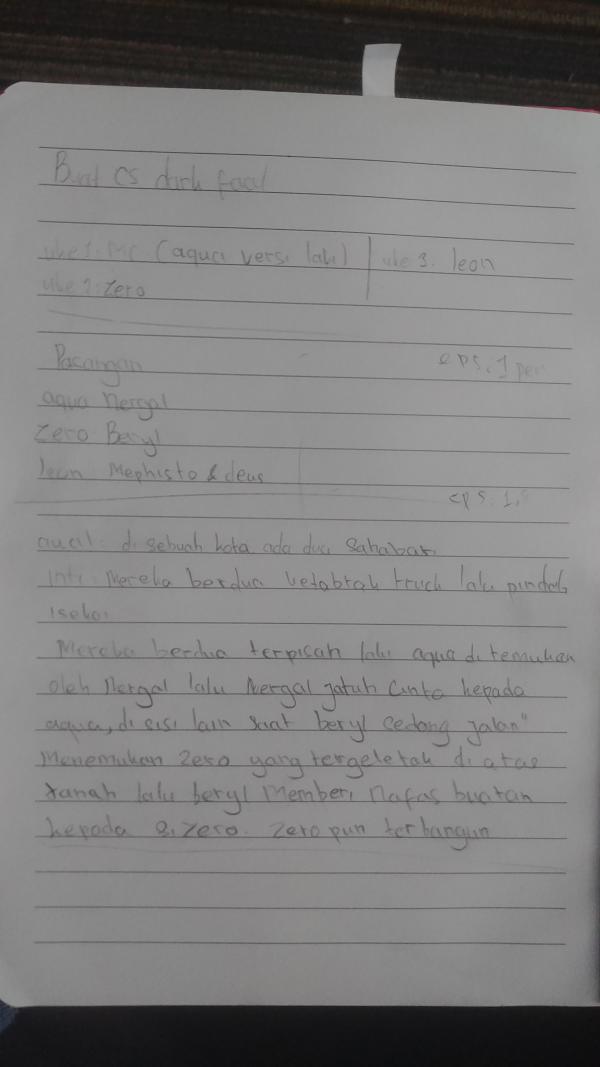 Buat CS dark faal
uke 1: MC (aqua versi laki) | uke 3. leon
uke 2: Zero
Pasangan
eps. 1 per
aqua Nergal
Zero Beryl
leon Mephisto & deus
eps. 1,
awal: di sebuah kota ada dua Sahabat
inti: Mereka berdua ketabrak truck lalu pindah
isekai
Mereka berdua terpisah lalu aqua di temukan
oleh Nergal lalu Nergal jatuh Cinta kepada
aqua, di sisi lain saat beryl sedang jalan"
Menemukan Zero yang tergeletak di atas
tanah lalu beryl Memberi Nafas buatan
kepada Zero. Zero pun terbangun